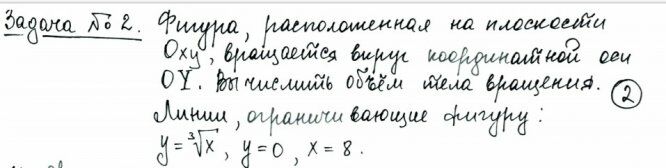 Задача № 2. Фигура, расположенная на плоскости
Oxy, вращается вокруг координатной оси
OY. Вычислить объём тела вращения.
Линии, ограничивающие фигуру: ②
y = ∛x, y = 0, x = 8.